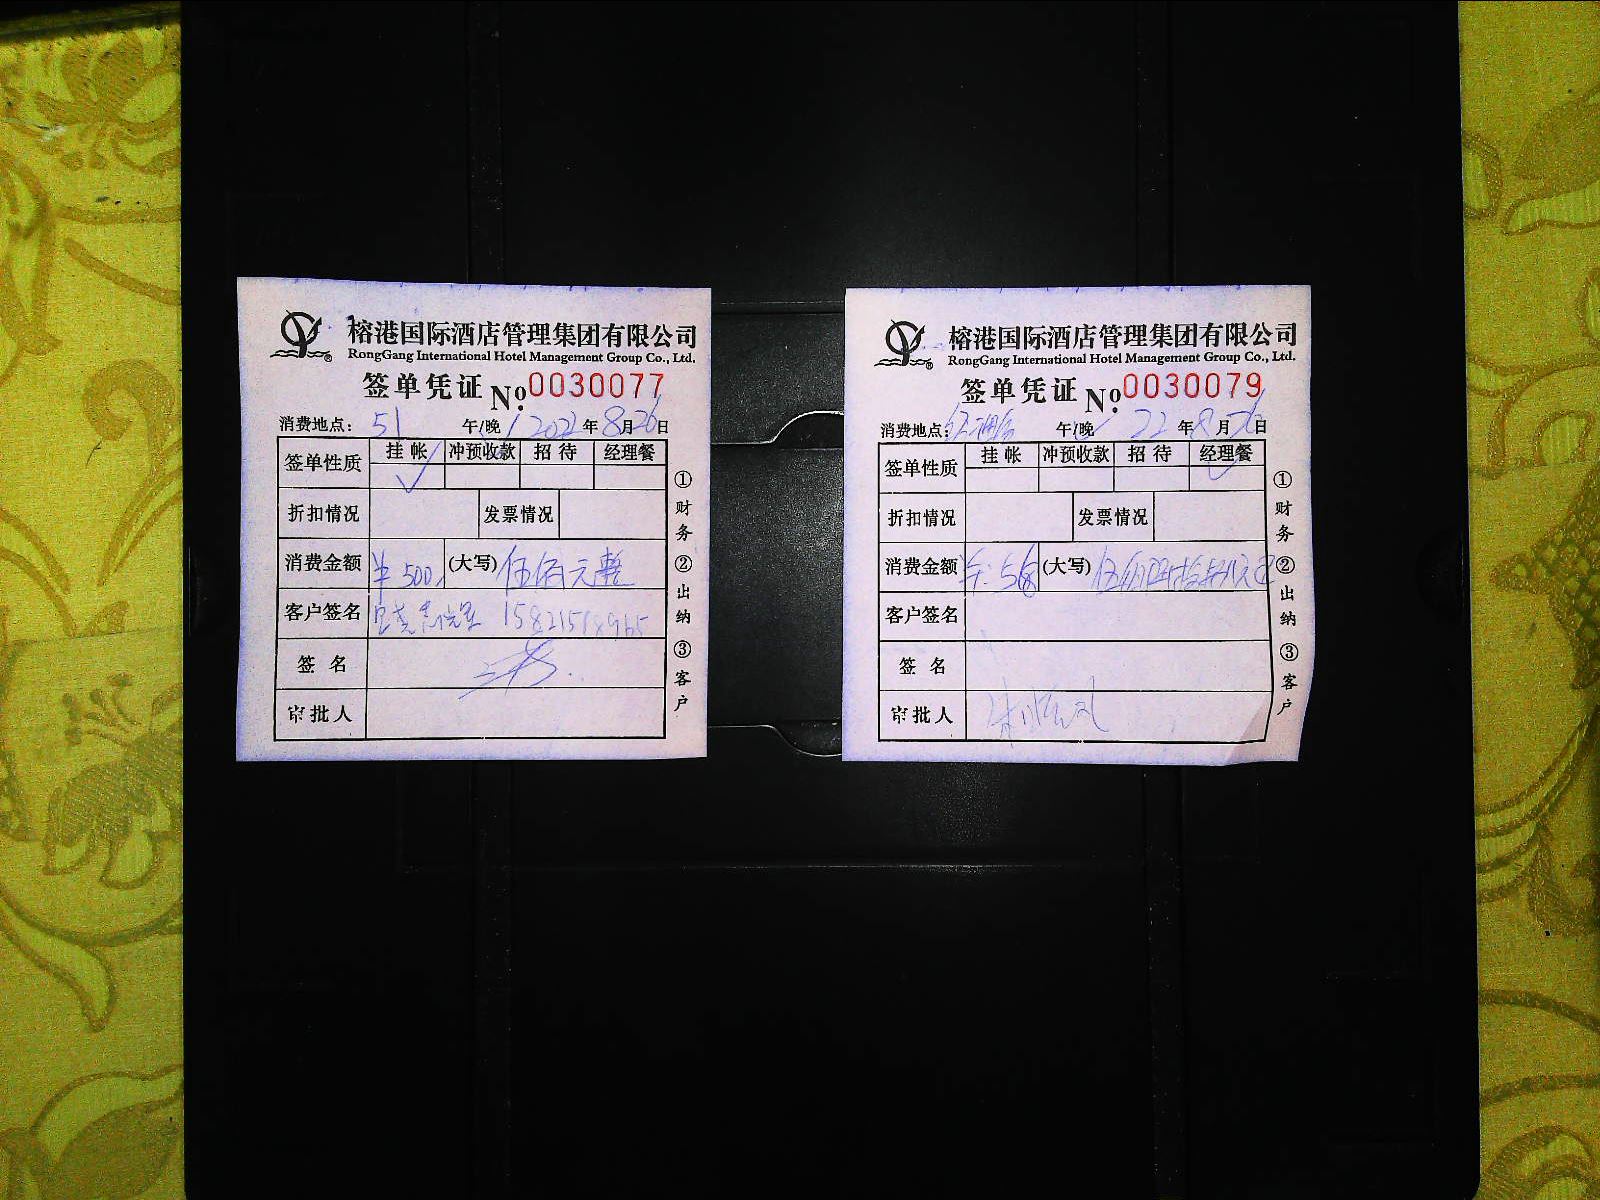 榕港国际酒店管理集团有限公司
RongGang International Hotel Management Group Co., Ltd.
签单凭证 No. 0030077
消费地点: 51 午/晚 2022年8月26日
签单性质 挂帐 冲预收款 招待 经理餐
折扣情况 发票情况
消费金额 ¥500 (大写) 伍佰元整
客户签名
签名
审批人
①财务 ②出纳 ③客户
榕港国际酒店管理集团有限公司
RongGang International Hotel Management Group Co., Ltd.
签单凭证 No. 0030079
消费地点: 午/晚 22年8月26日
签单性质 挂帐 冲预收款 招待 经理餐
折扣情况 发票情况
消费金额 (大写)
客户签名
签名
审批人
①财务 ②出纳 ③客户